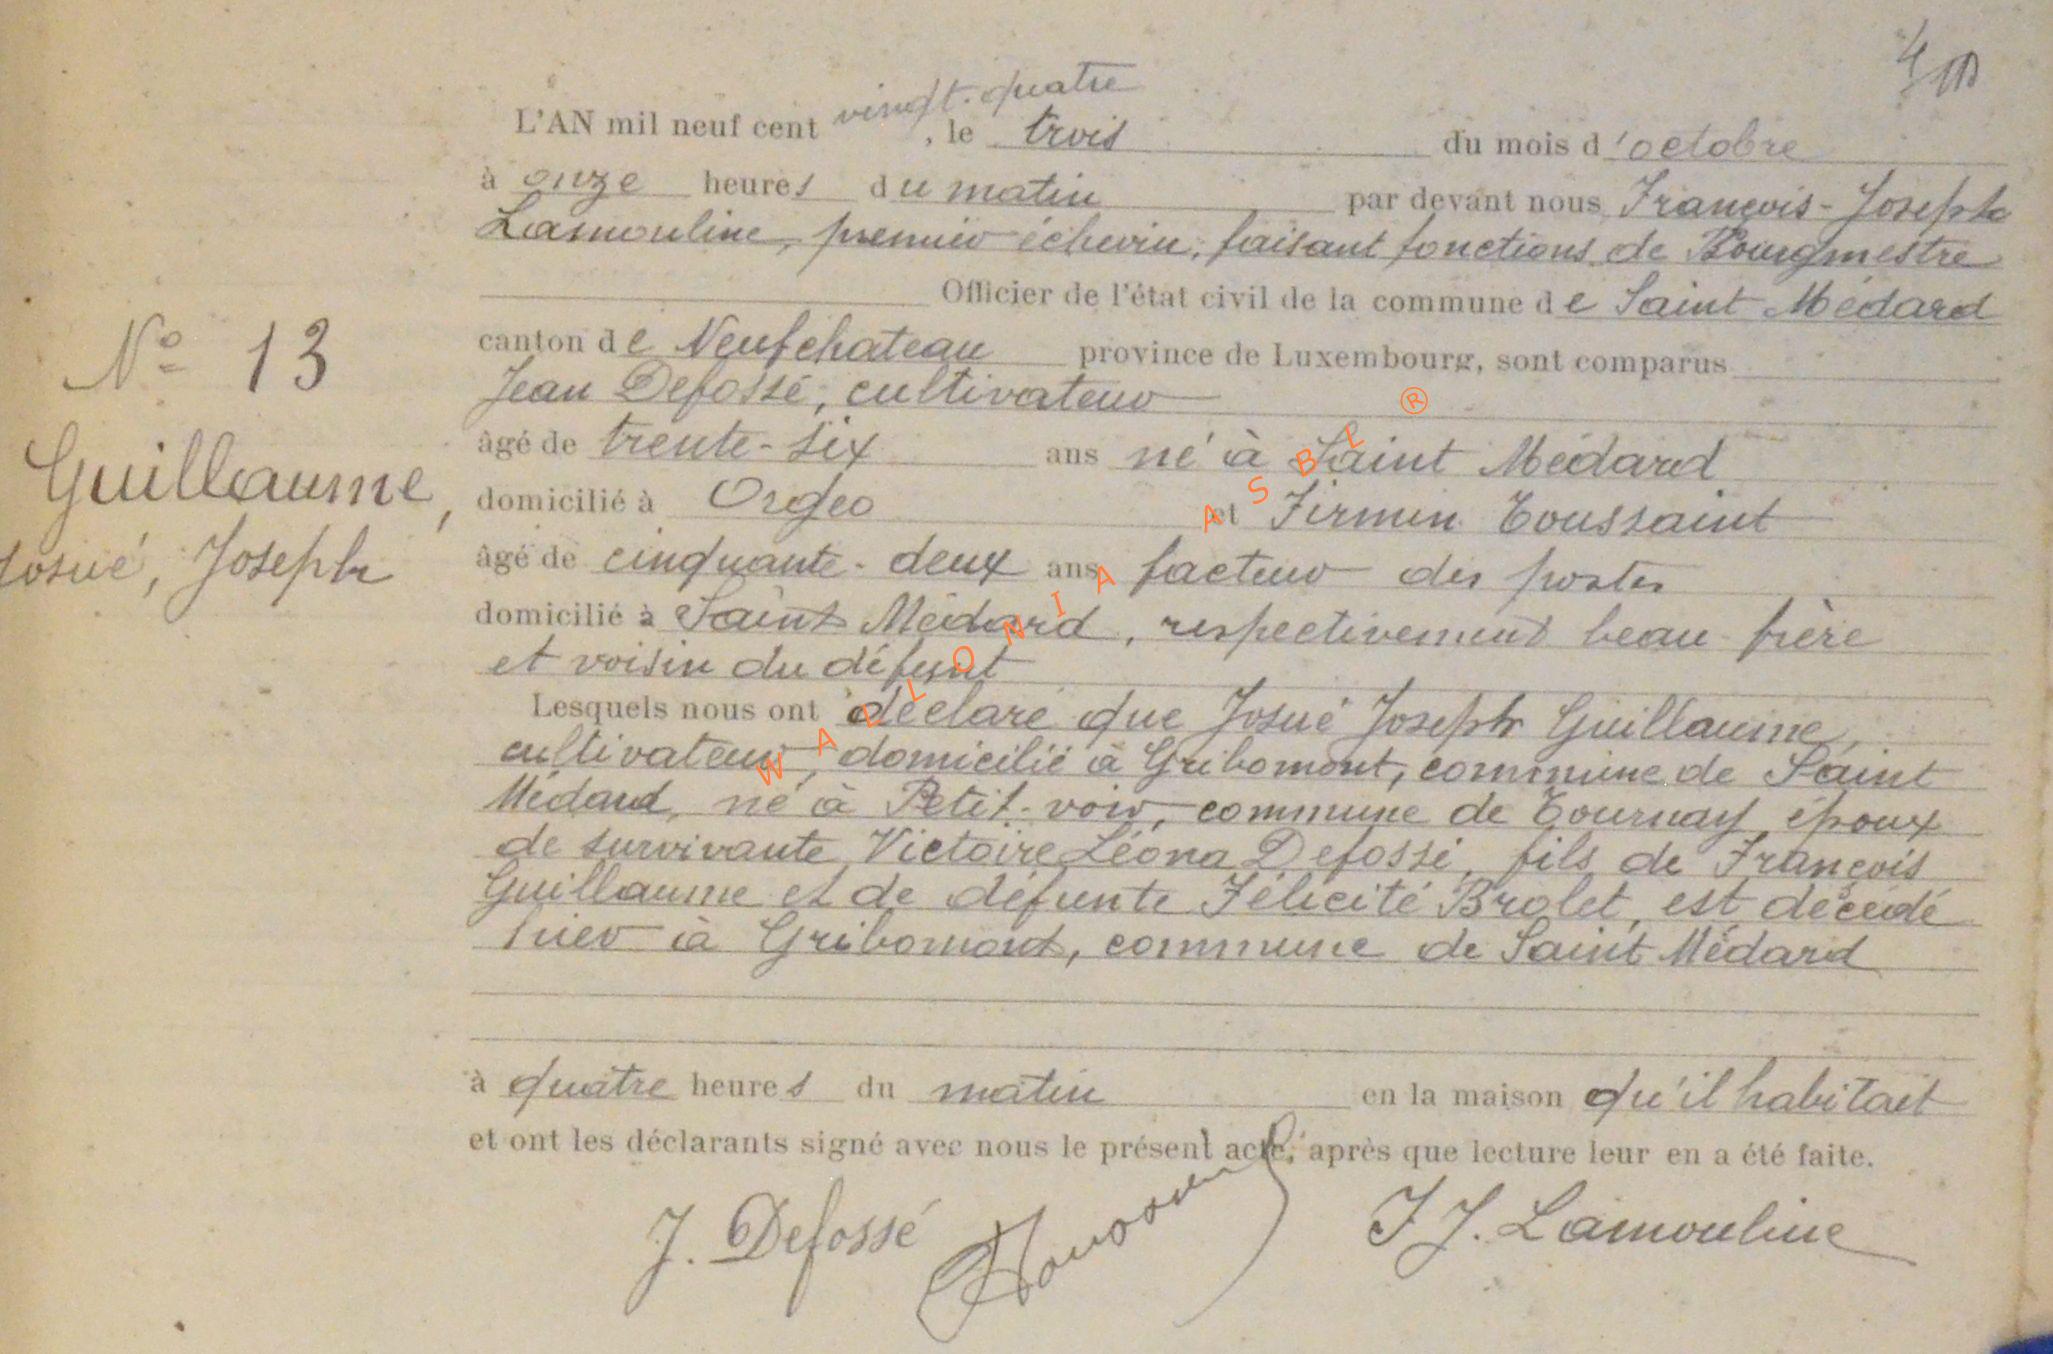 L'AN mil neuf cent vingt-quatre, le trois du mois d'octobre
à onze heures du matin par devant nous François-Joseph
Lamouline, premier échevin, faisant fonctions de Bourgmestre
Officier de l'état civil de la commune de Saint Médard
canton de Neufchateau province de Luxembourg, sont comparus
Jean Defossé, cultivateur
âgé de trente-six ans né à Saint Médard
domicilié à Orgeo et Firmin Toussaint
âgé de cinquante-deux ans facteur des postes
domicilié à Saint Médard, respectivement beau frère
et voisin du défunt
Lesquels nous ont déclaré que Josué Joseph Guillaume,
cultivateur, domicilié à Gribomont, commune de Saint
Médard, né à Petit-voir, commune de Tournay, époux
de survivante Victoire Léona Defossé, fils de François
Guillaume et de défunte Félicité Brolet, est décédé
hier à Gribomont, commune de Saint Médard
à quatre heures du matin en la maison qu'il habitait
et ont les déclarants signé avec nous le présent acte, après que lecture leur en a été faite.
J. Defossé
F J. Lamouline
N° 13
Guillaume,
Josué, Joseph
WALLONIA ASBL ®